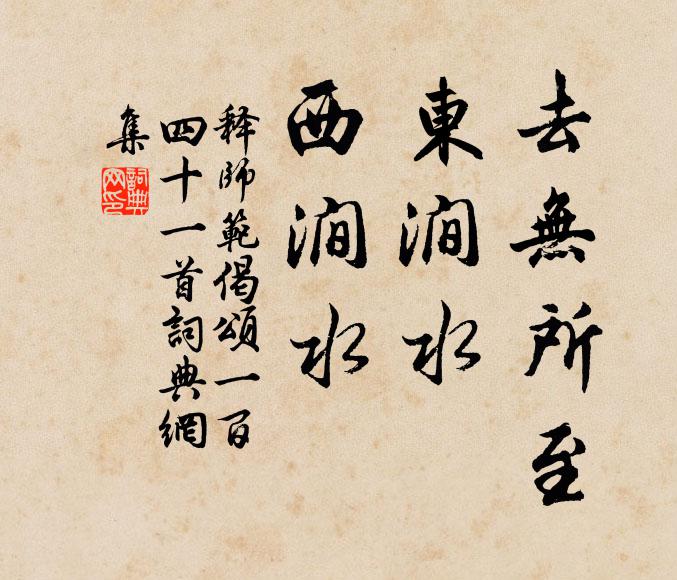 去無所至
東澗水
西澗水
释師範偈頌一百
四十一首詞典網
集
詞典
网印